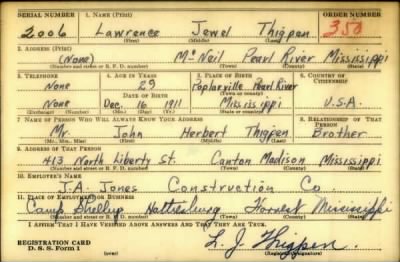 SERIAL NUMBER 1. NAME (Print) ORDER NUMBER
2006 Lawrence Jewel Thigpen 353
(First) (Middle) (Last)
2. ADDRESS (Print)
(None) McNeil Pearl River Mississippi
(Number and street or R. F. D. number) (Town) (County) (State)
3. TELEPHONE 4. AGE IN YEARS 5. PLACE OF BIRTH 6. COUNTRY OF CITIZENSHIP
None 29 Poplarville Pearl River
DATE OF BIRTH (Town or county)
None Dec. 16 1911 Mississippi U.S.A.
(Exchange) (Number) (Mo.) (Day) (Yr.) (State or country)
7. NAME OF PERSON WHO WILL ALWAYS KNOW YOUR ADDRESS 8. RELATIONSHIP OF THAT PERSON
Mr. John Herbert Thigpen Brother
(Mr., Mrs., Miss) (First) (Middle) (Last)
9. ADDRESS OF THAT PERSON
413 North Liberty St. Canton Madison Mississippi
(Number and street or R. F. D. number) (Town) (County) (State)
10. EMPLOYER'S NAME
J.A. Jones Construction Co
11. PLACE OF EMPLOYMENT OR BUSINESS
Camp Shelby Hattiesburg Forrest Mississippi
(Number and street or R. F. D. number) (Town) (County) (State)
I AFFIRM THAT I HAVE VERIFIED ABOVE ANSWERS AND THAT THEY ARE TRUE.
REGISTRATION CARD L. J. Thigpen.
D. S. S. Form 1 (over) (Registrant's signature)